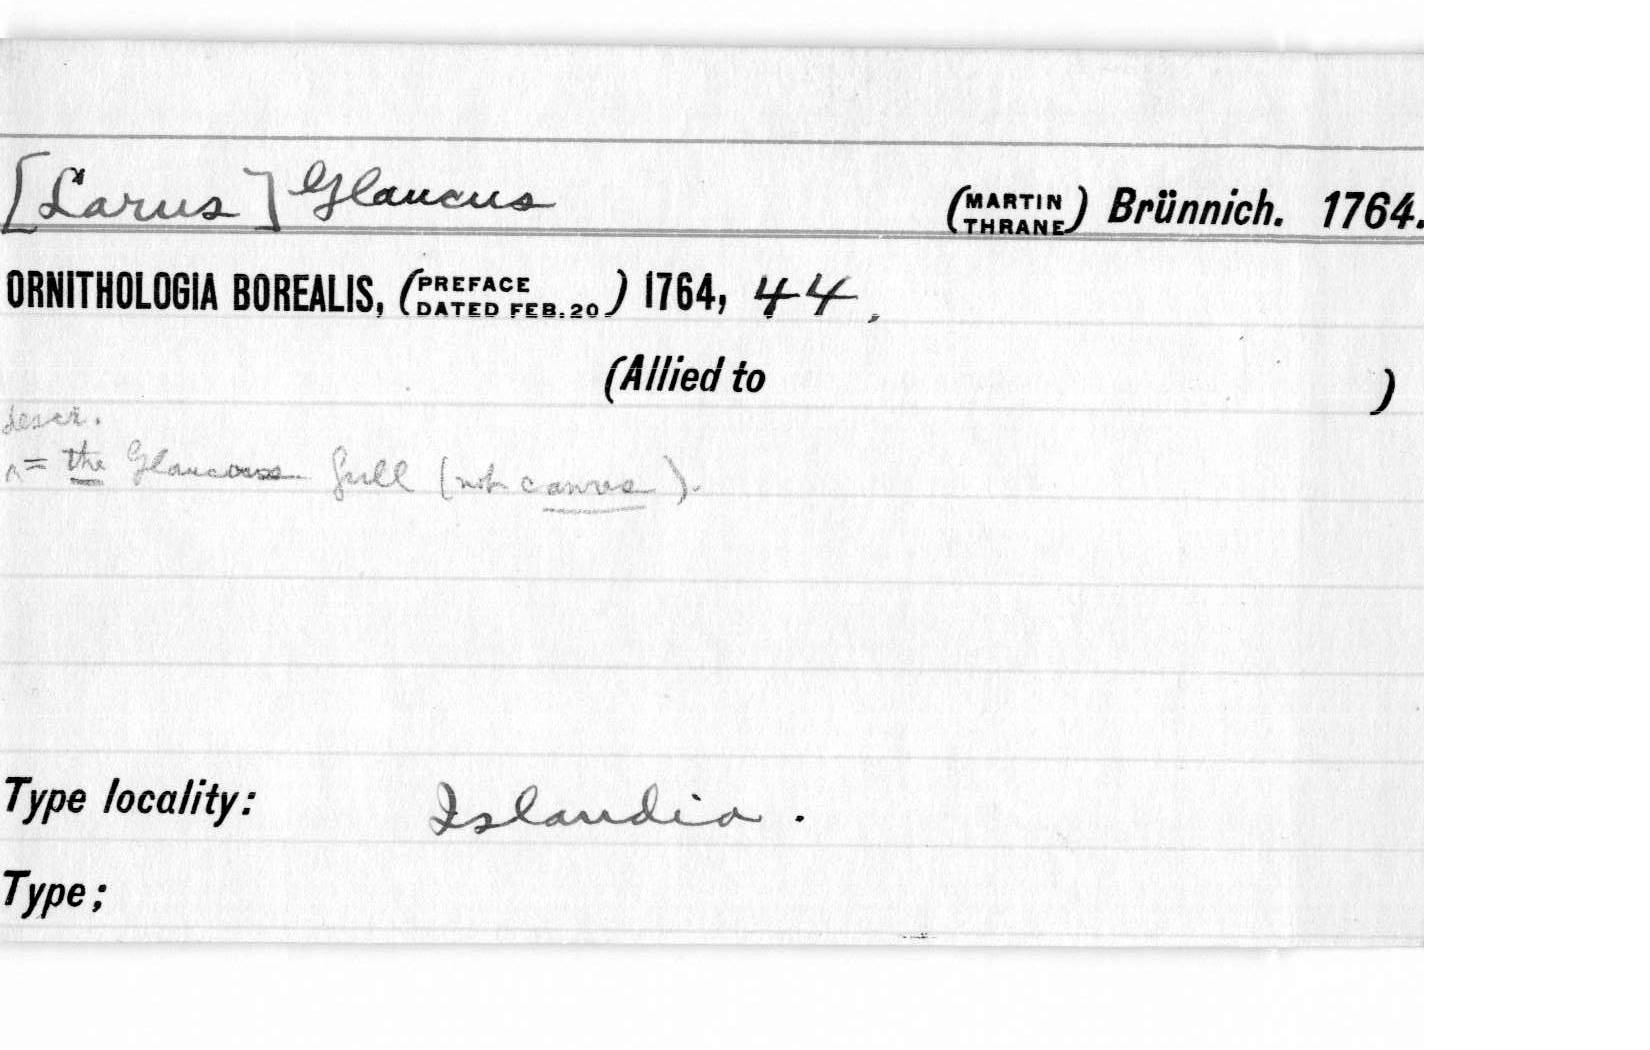 [Larus] Glaucus (MARTIN THRANE) Brünnich. 1764.
ORNITHOLOGIA BOREALIS, (PREFACE DATED FEB. 20) 1764, 44,
(Allied to )
descr.
= the Glaucous Gull (not canus).
Type locality: Islandia.
Type;